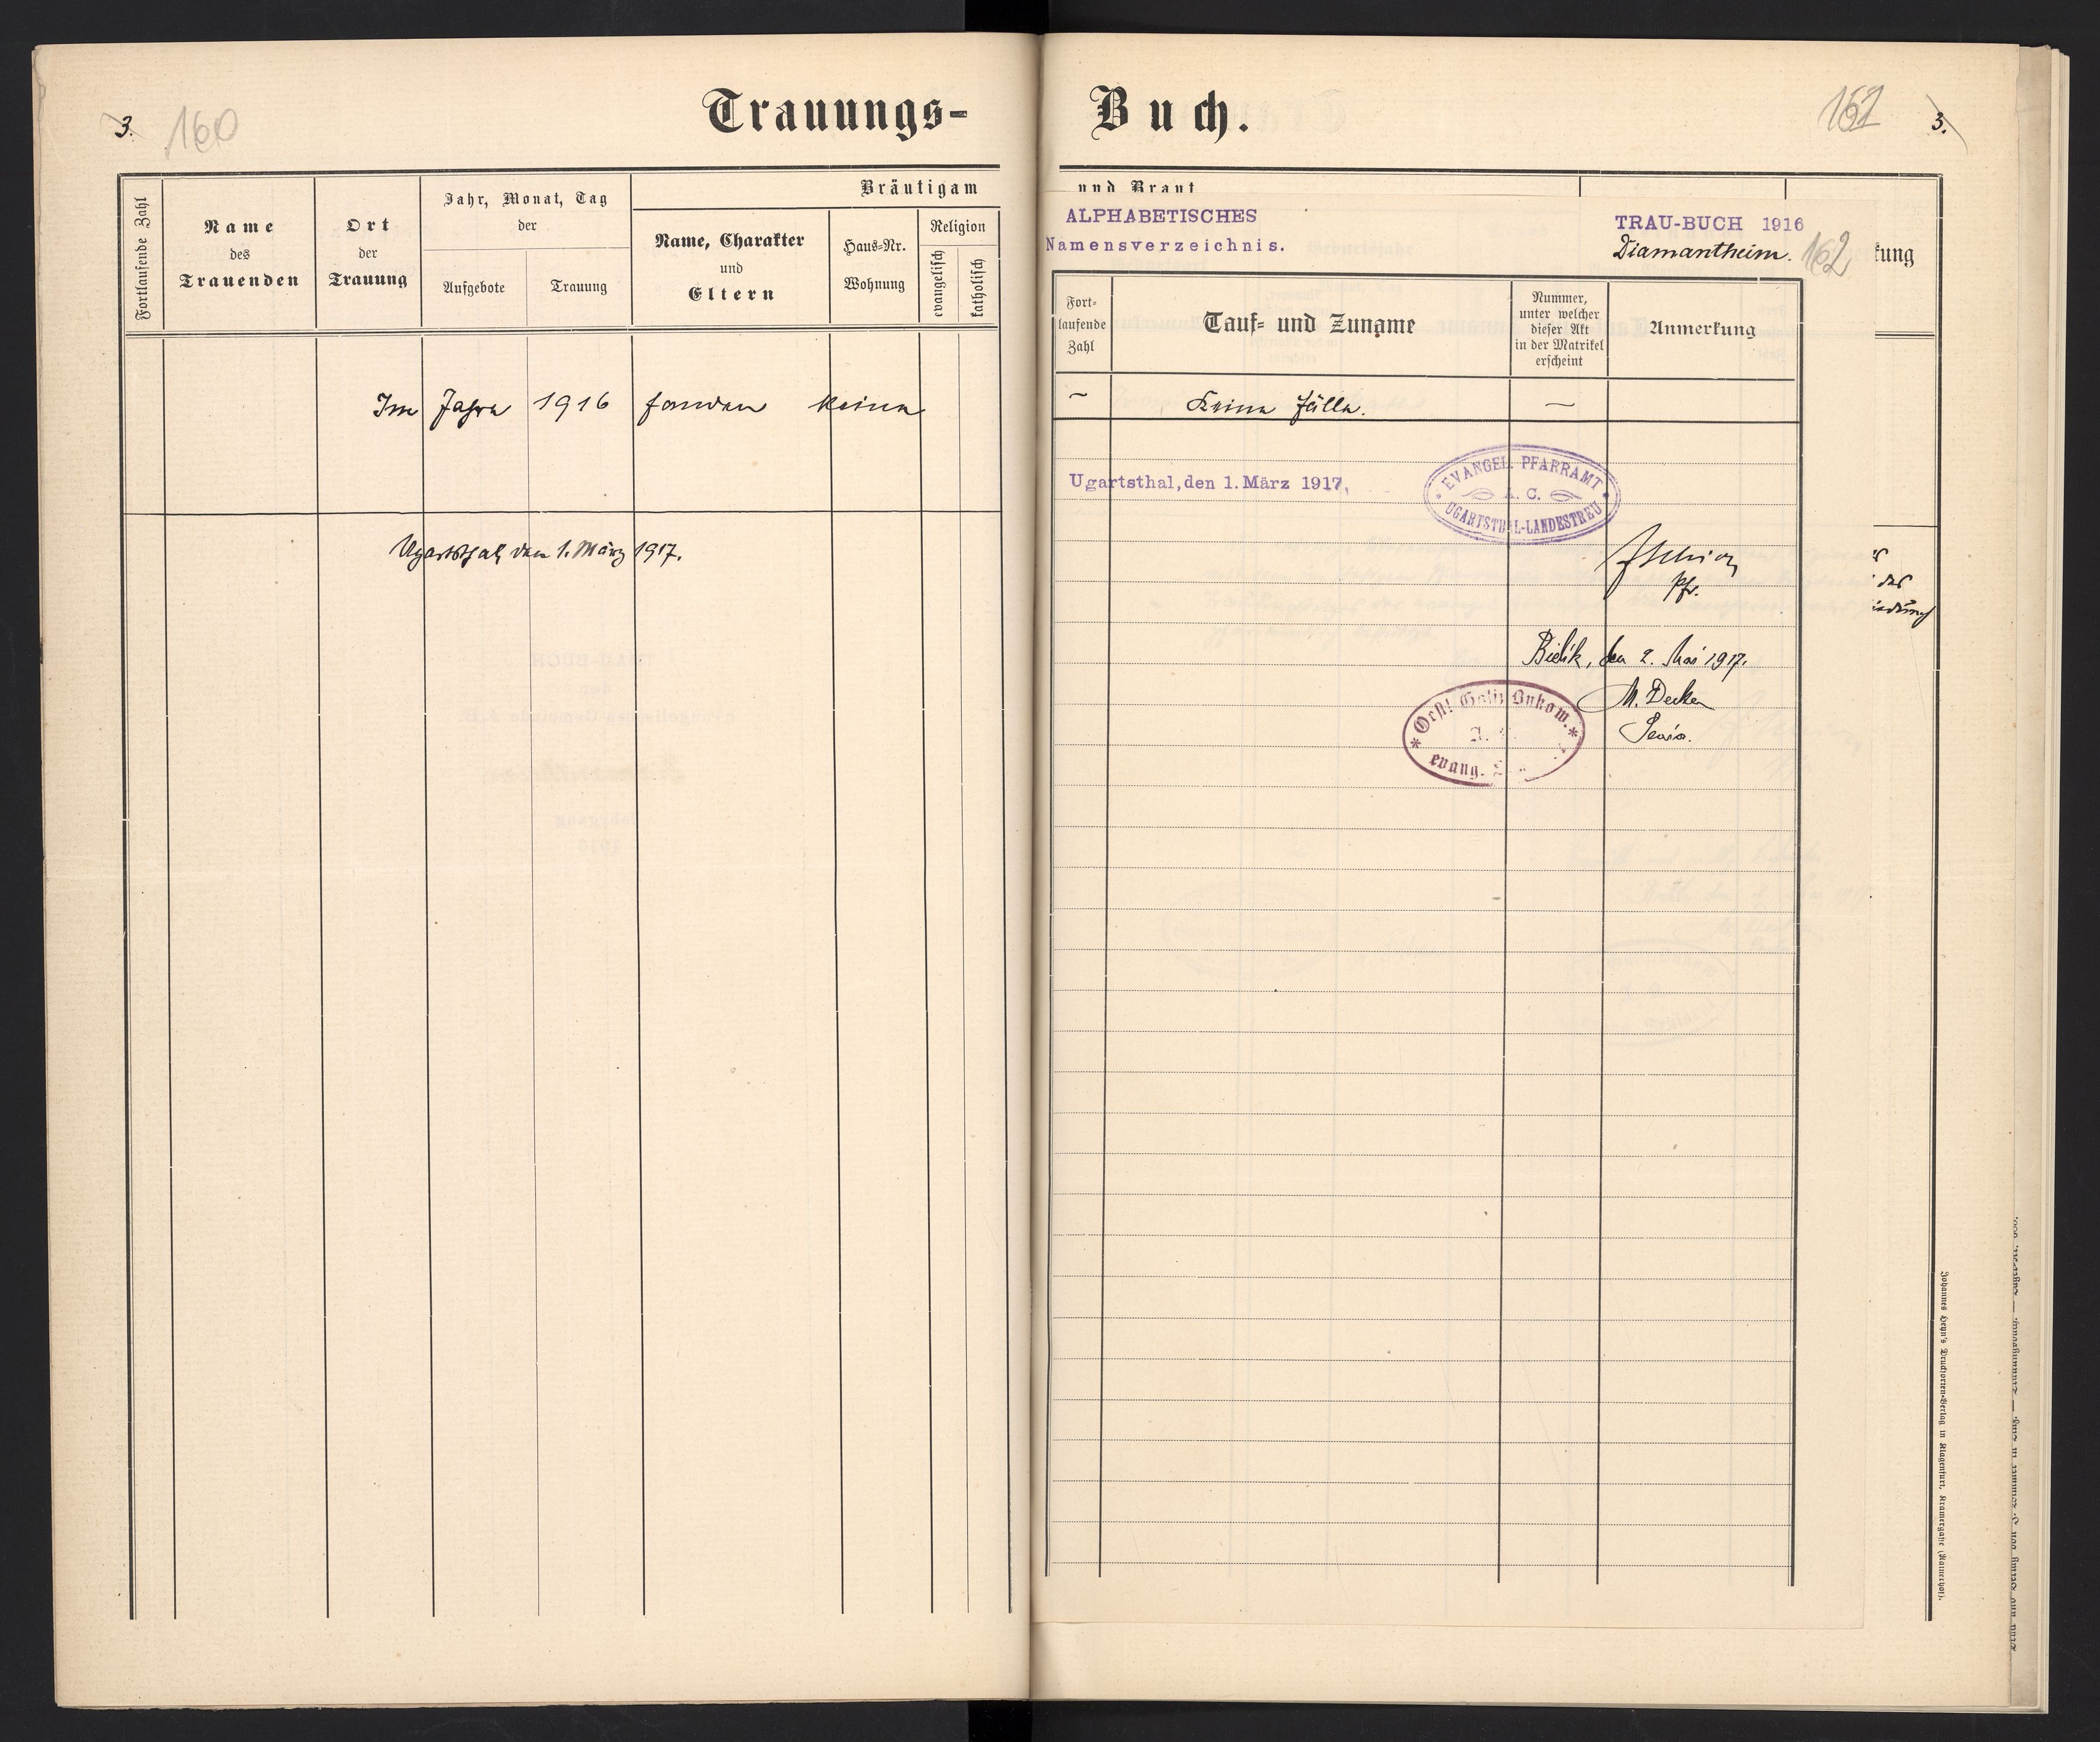 3. 160
Trauungs-
Fortlaufende Zahl
Name
des
Trauenden
Ort
der
Trauung
Jahr, Monat, Tag
der
Aufgebote
Trauung
Bräutigam
Name, Charakter
und
Eltern
Haus-Nr.
Wohnung
Religion
evangelisch
katholisch
Im Jahre 1916 fanden keine
Ugartsthal, den 1. März 1917.
Buch.
161 3.
und Braut
ALPHABETISCHES
Namensverzeichnis.
TRAU-BUCH 1916
Diamantheim. 162
kung
Fort-
laufende
Zahl
Tauf- und Zuname
Nummer,
unter welcher
dieser Akt
in der Matrikel
erscheint
Anmerkung
— Keine Fälle. —
Ugartsthal, den 1. März 1917.
EVANGEL. PFARRAMT
A. C.
UGARTSTHAL-LANDESTREU
Pfr.
der
Bielik, den 2. Mai 1917.
M. Decker
Senior.
Bukow.
evang.
Johannes Heyn's Drucksorten-Verlag in Klagenfurt, Kramergasse